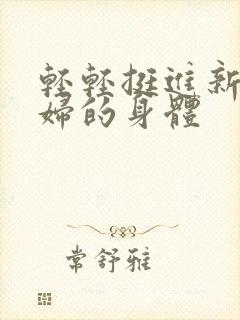 輕輕挺進新
婦的身體
常舒雅